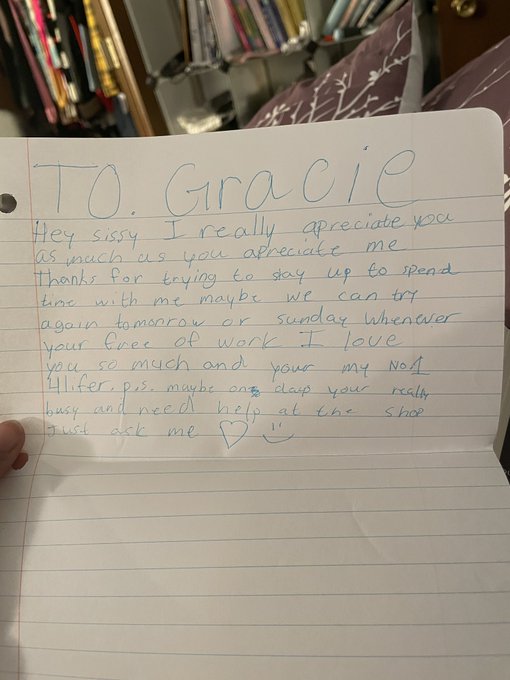 TO. Gracie
Hey sissy I really apreciate you
as much as you apreciate me
Thanks for trying to stay up to spend
time with me maybe we can try
again tomorrow or sunday whenever
your free of work I love
you so much and your my No.1
4lifer. p.s. maybe one day your really
busy and need help at the shop
Just ask me